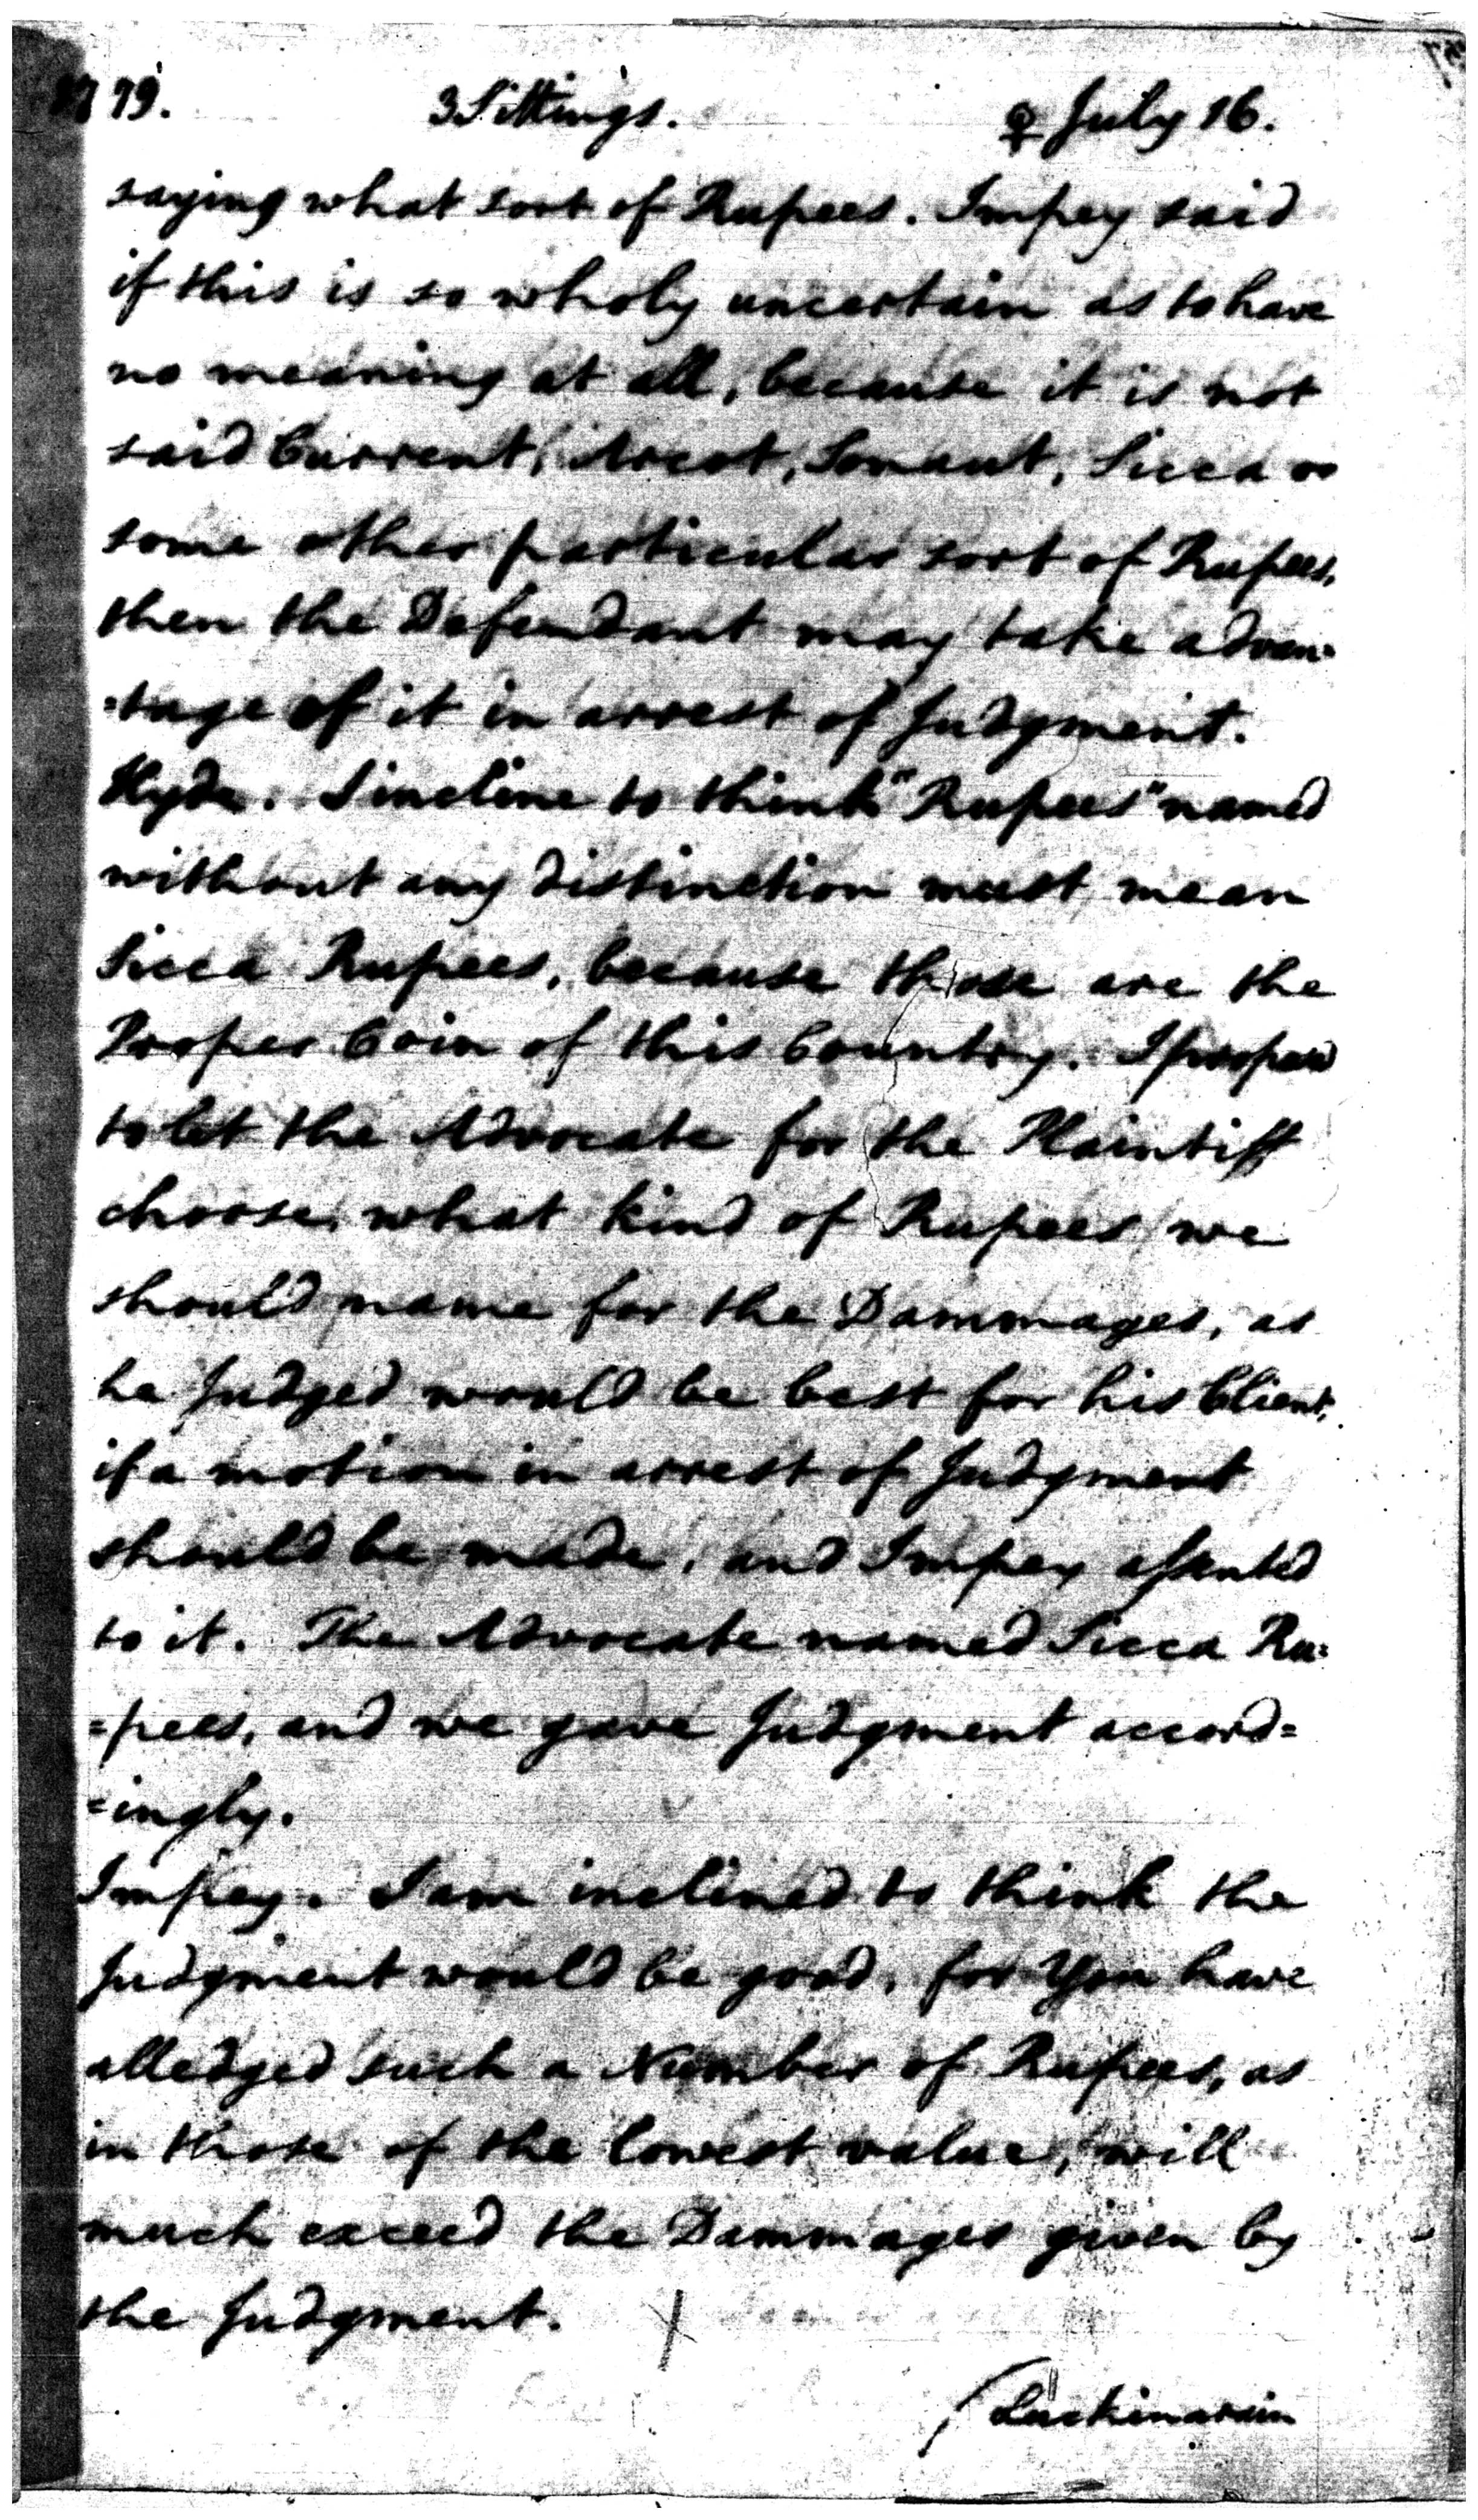 1779. 3 Sittings. ♀ July 16.
saying what sort of Rupees. Impey said
if this is so wholy uncertain as to have
no meaning at all, because it is not
said Current, Arcot, Sonaut, Sicca or
some other particular sort of Rupees,
then the Defendant may take advan=
=tage of it in arrest of Judgment.
Hyde. I incline to think "Rupees" named
without any distinction must mean
Sicca Rupees, because those are the
Proper Coin of this Country. I propos'd
to let the Advocate for the Plaintiff
choose, what kind of Rupees we
should name for the Dammages, as
he Judged would be best for his Client,
if a motion in arrest of Judgment
should be made, and Impey assented
to it. The Advocate named Sicca Ru=
=pees, and we gave Judgment accord=
=ingly.
Impey. I am inclined to think the
Judgment would be good, for You have
alledged such a Number of Rupees, as
in those of the lowest value, will
much exceed the Dammages given by
the Judgment.
Luckinarain